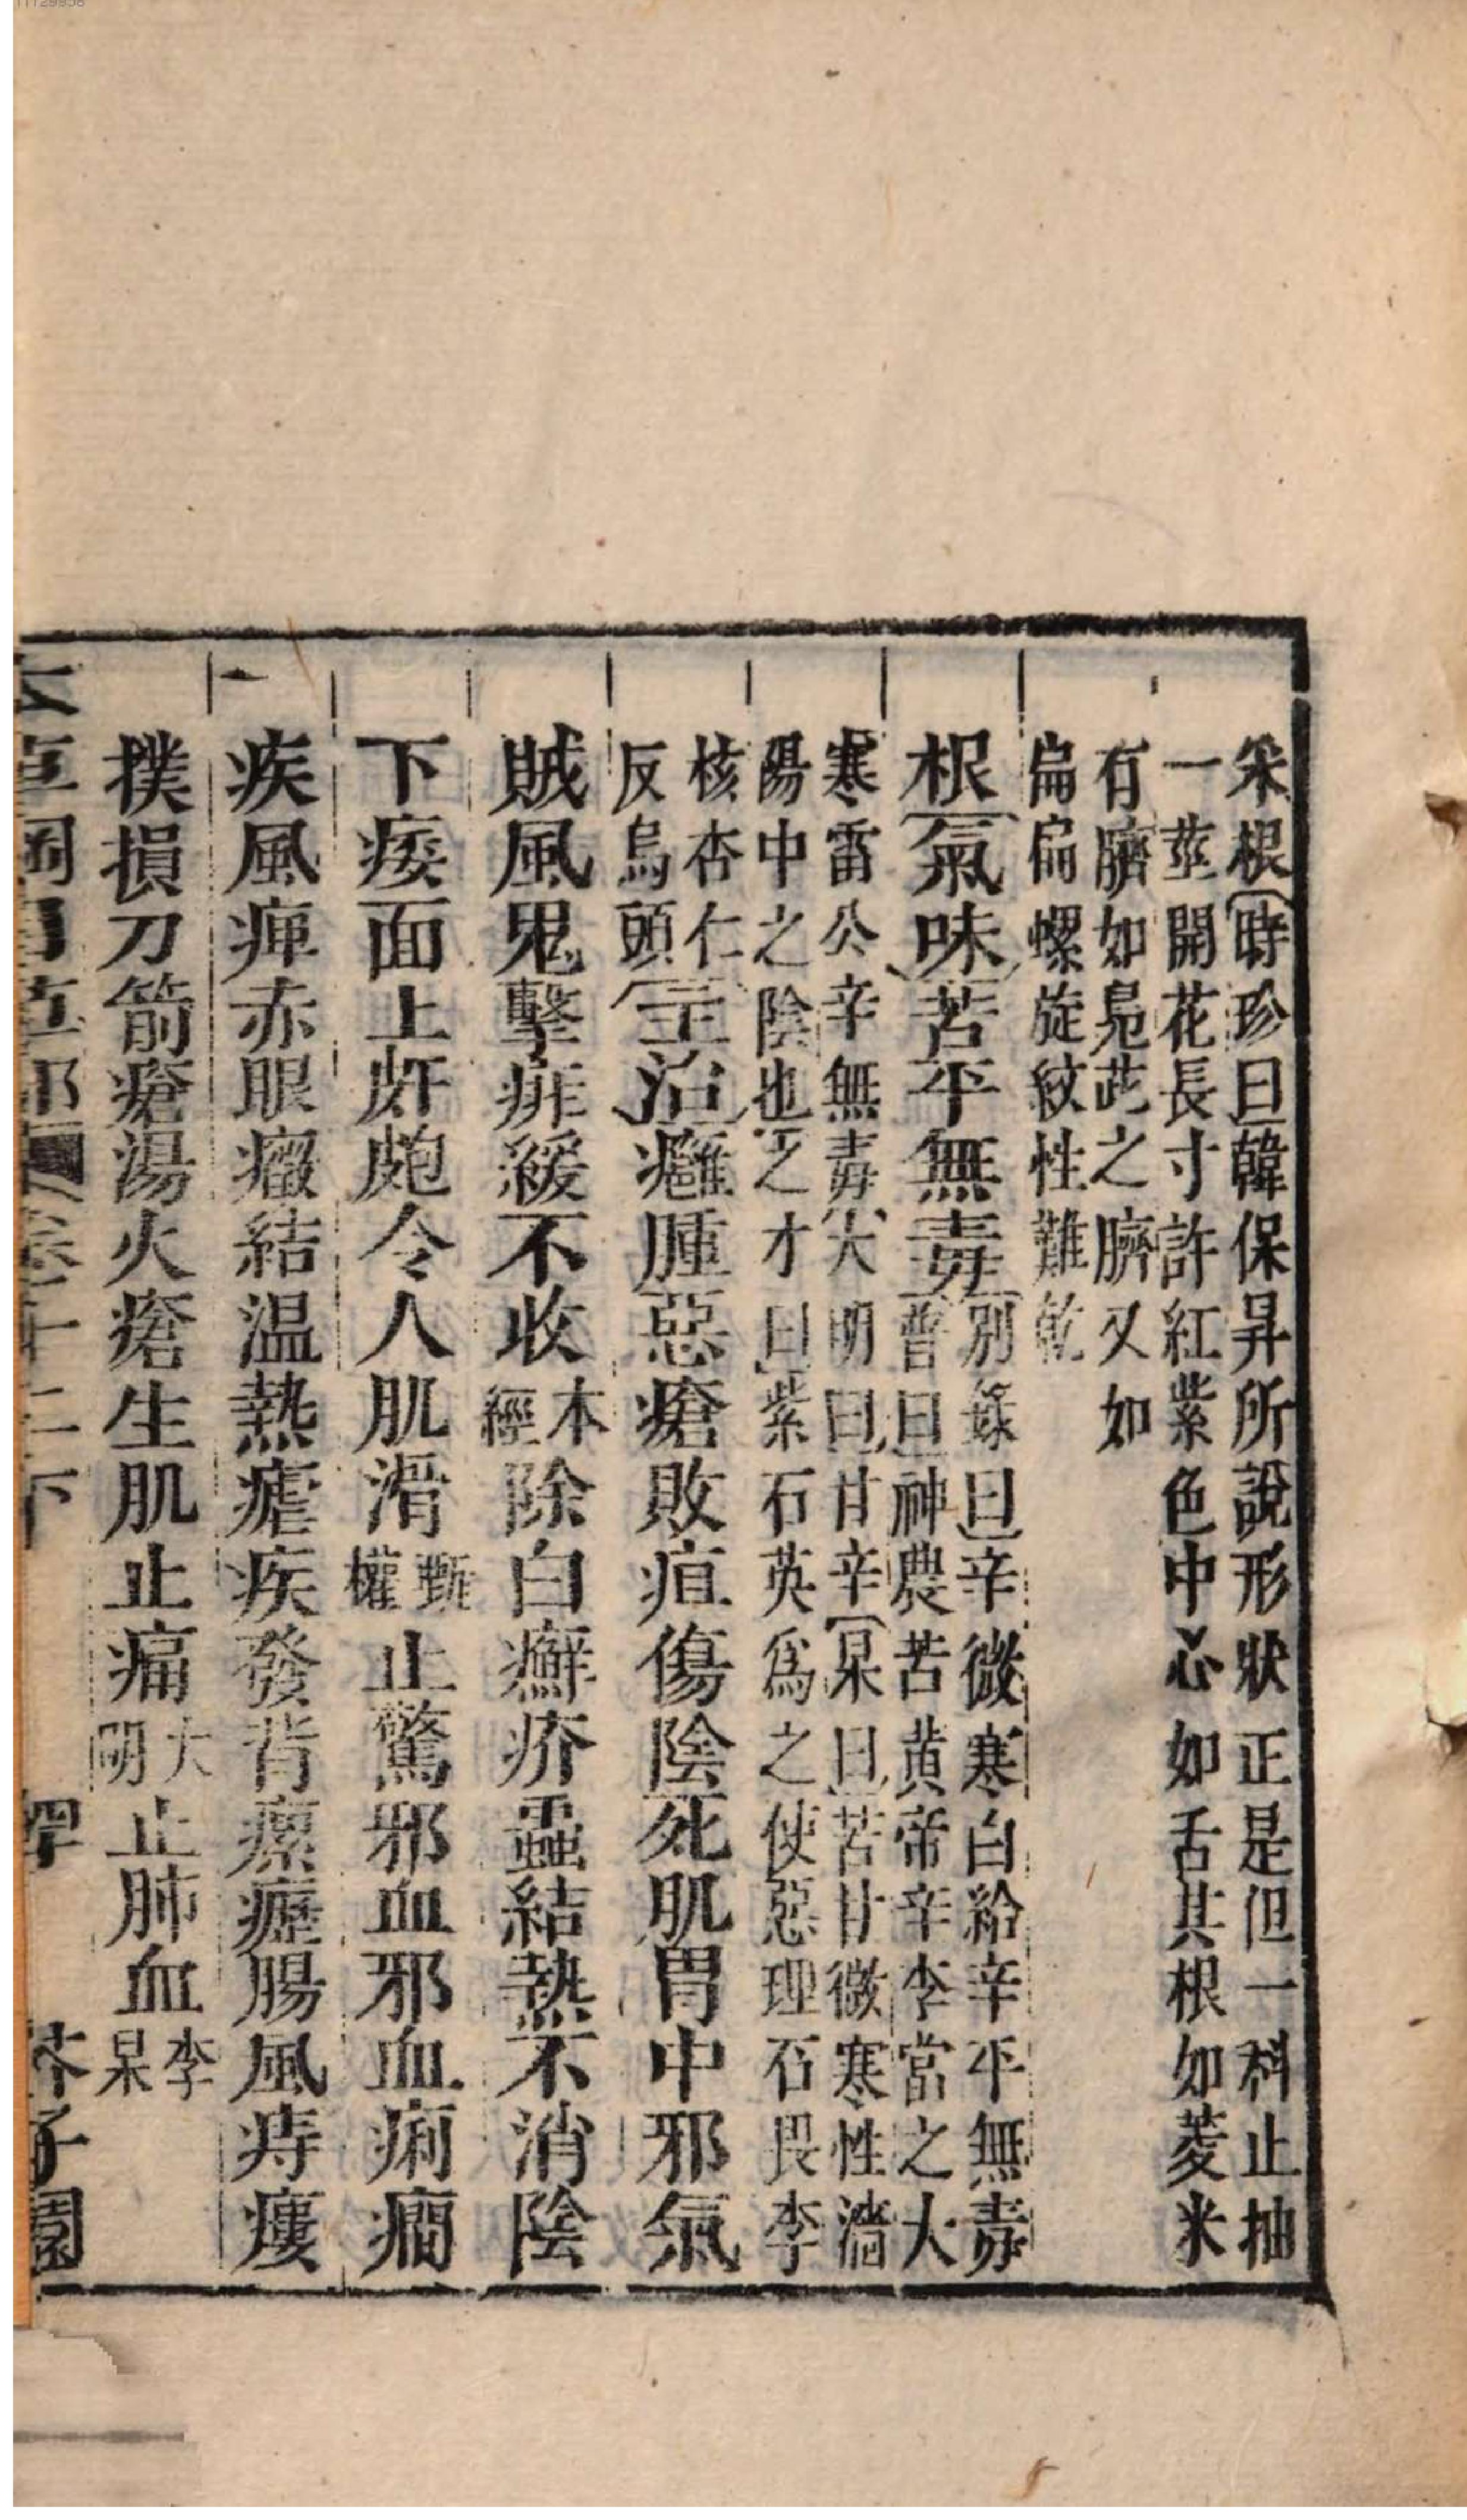 采根〔時珍曰〕韓保昇所說形狀正是但一科止抽
一莖開花長寸許紅紫色中心如舌其根如菱米
有臍如鳧茈之臍又如
扁扁螺旋紋性難乾
根〔氣味〕苦平無毒〔別錄曰〕辛微寒白給辛平無毒
〔普曰〕神農苦黄帝辛李當之大
寒雷公辛無毒〔大明曰〕甘辛〔杲曰〕苦甘微寒性濇
陽中之陰也〔之才曰〕紫石英爲之使惡理石畏李
核杏仁
反烏頭〔主治〕癰腫惡瘡敗疽傷陰死肌胃中邪氣
賊風鬼擊痱緩不收本經除白癬疥蟲結熱不消陰
下痿面上皯皰令人肌滑甄權止驚邪血邪血痢癇
疾風痺赤眼癥結温熱瘧疾發背瘰癧腸風痔瘻
撲損刀箭瘡湯火瘡生肌止痛大明止肺血李杲
本草綱目草部 卷十二下 芥子園